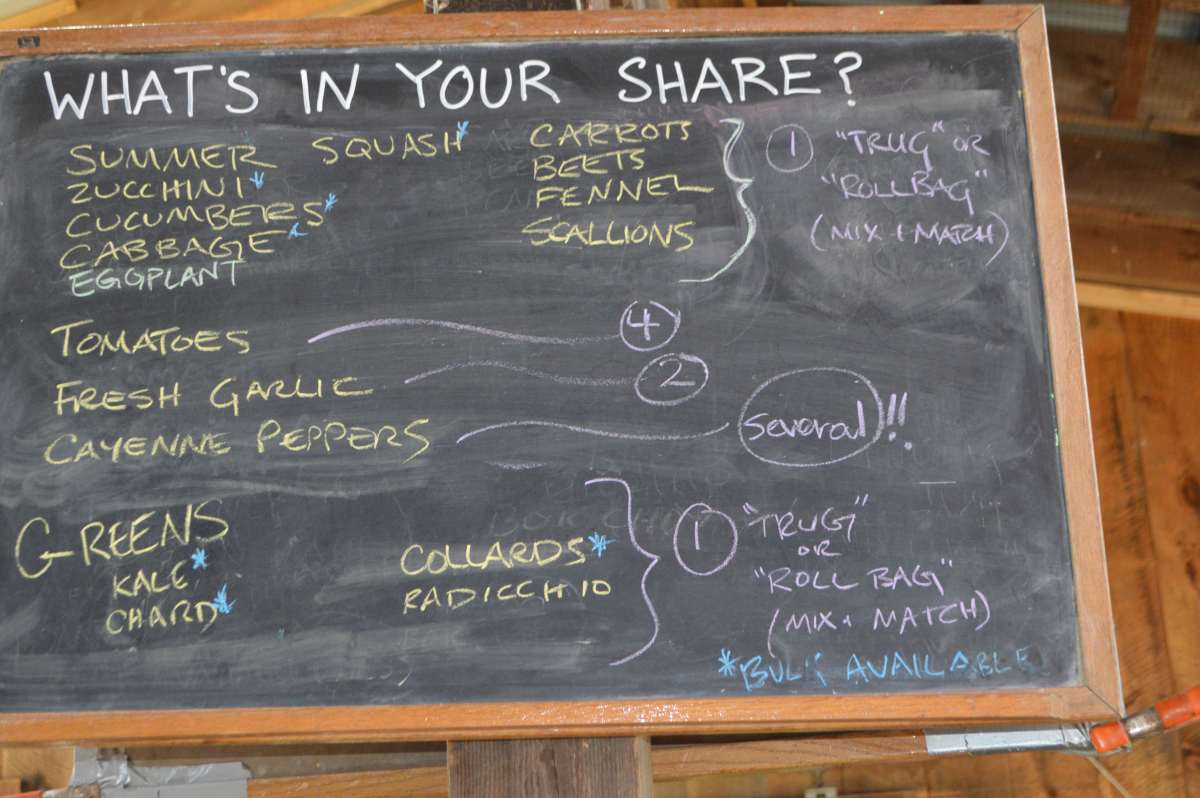 WHAT'S IN YOUR SHARE?
SUMMER SQUASH*
ZUCCHINI*
CUCUMBERS*
CABBAGE*
EGGPLANT
CARROTS
BEETS
FENNEL
SCALLIONS
1 "TRUG" OR
"ROLL BAG"
(MIX + MATCH)
TOMATOES 4
FRESH GARLIC 2
CAYENNE PEPPERS several!!
GREENS
KALE*
CHARD*
COLLARDS*
RADICCHIO
1 "TRUG"
OR
"ROLL BAG"
(MIX + MATCH)
*BULK AVAILABLE